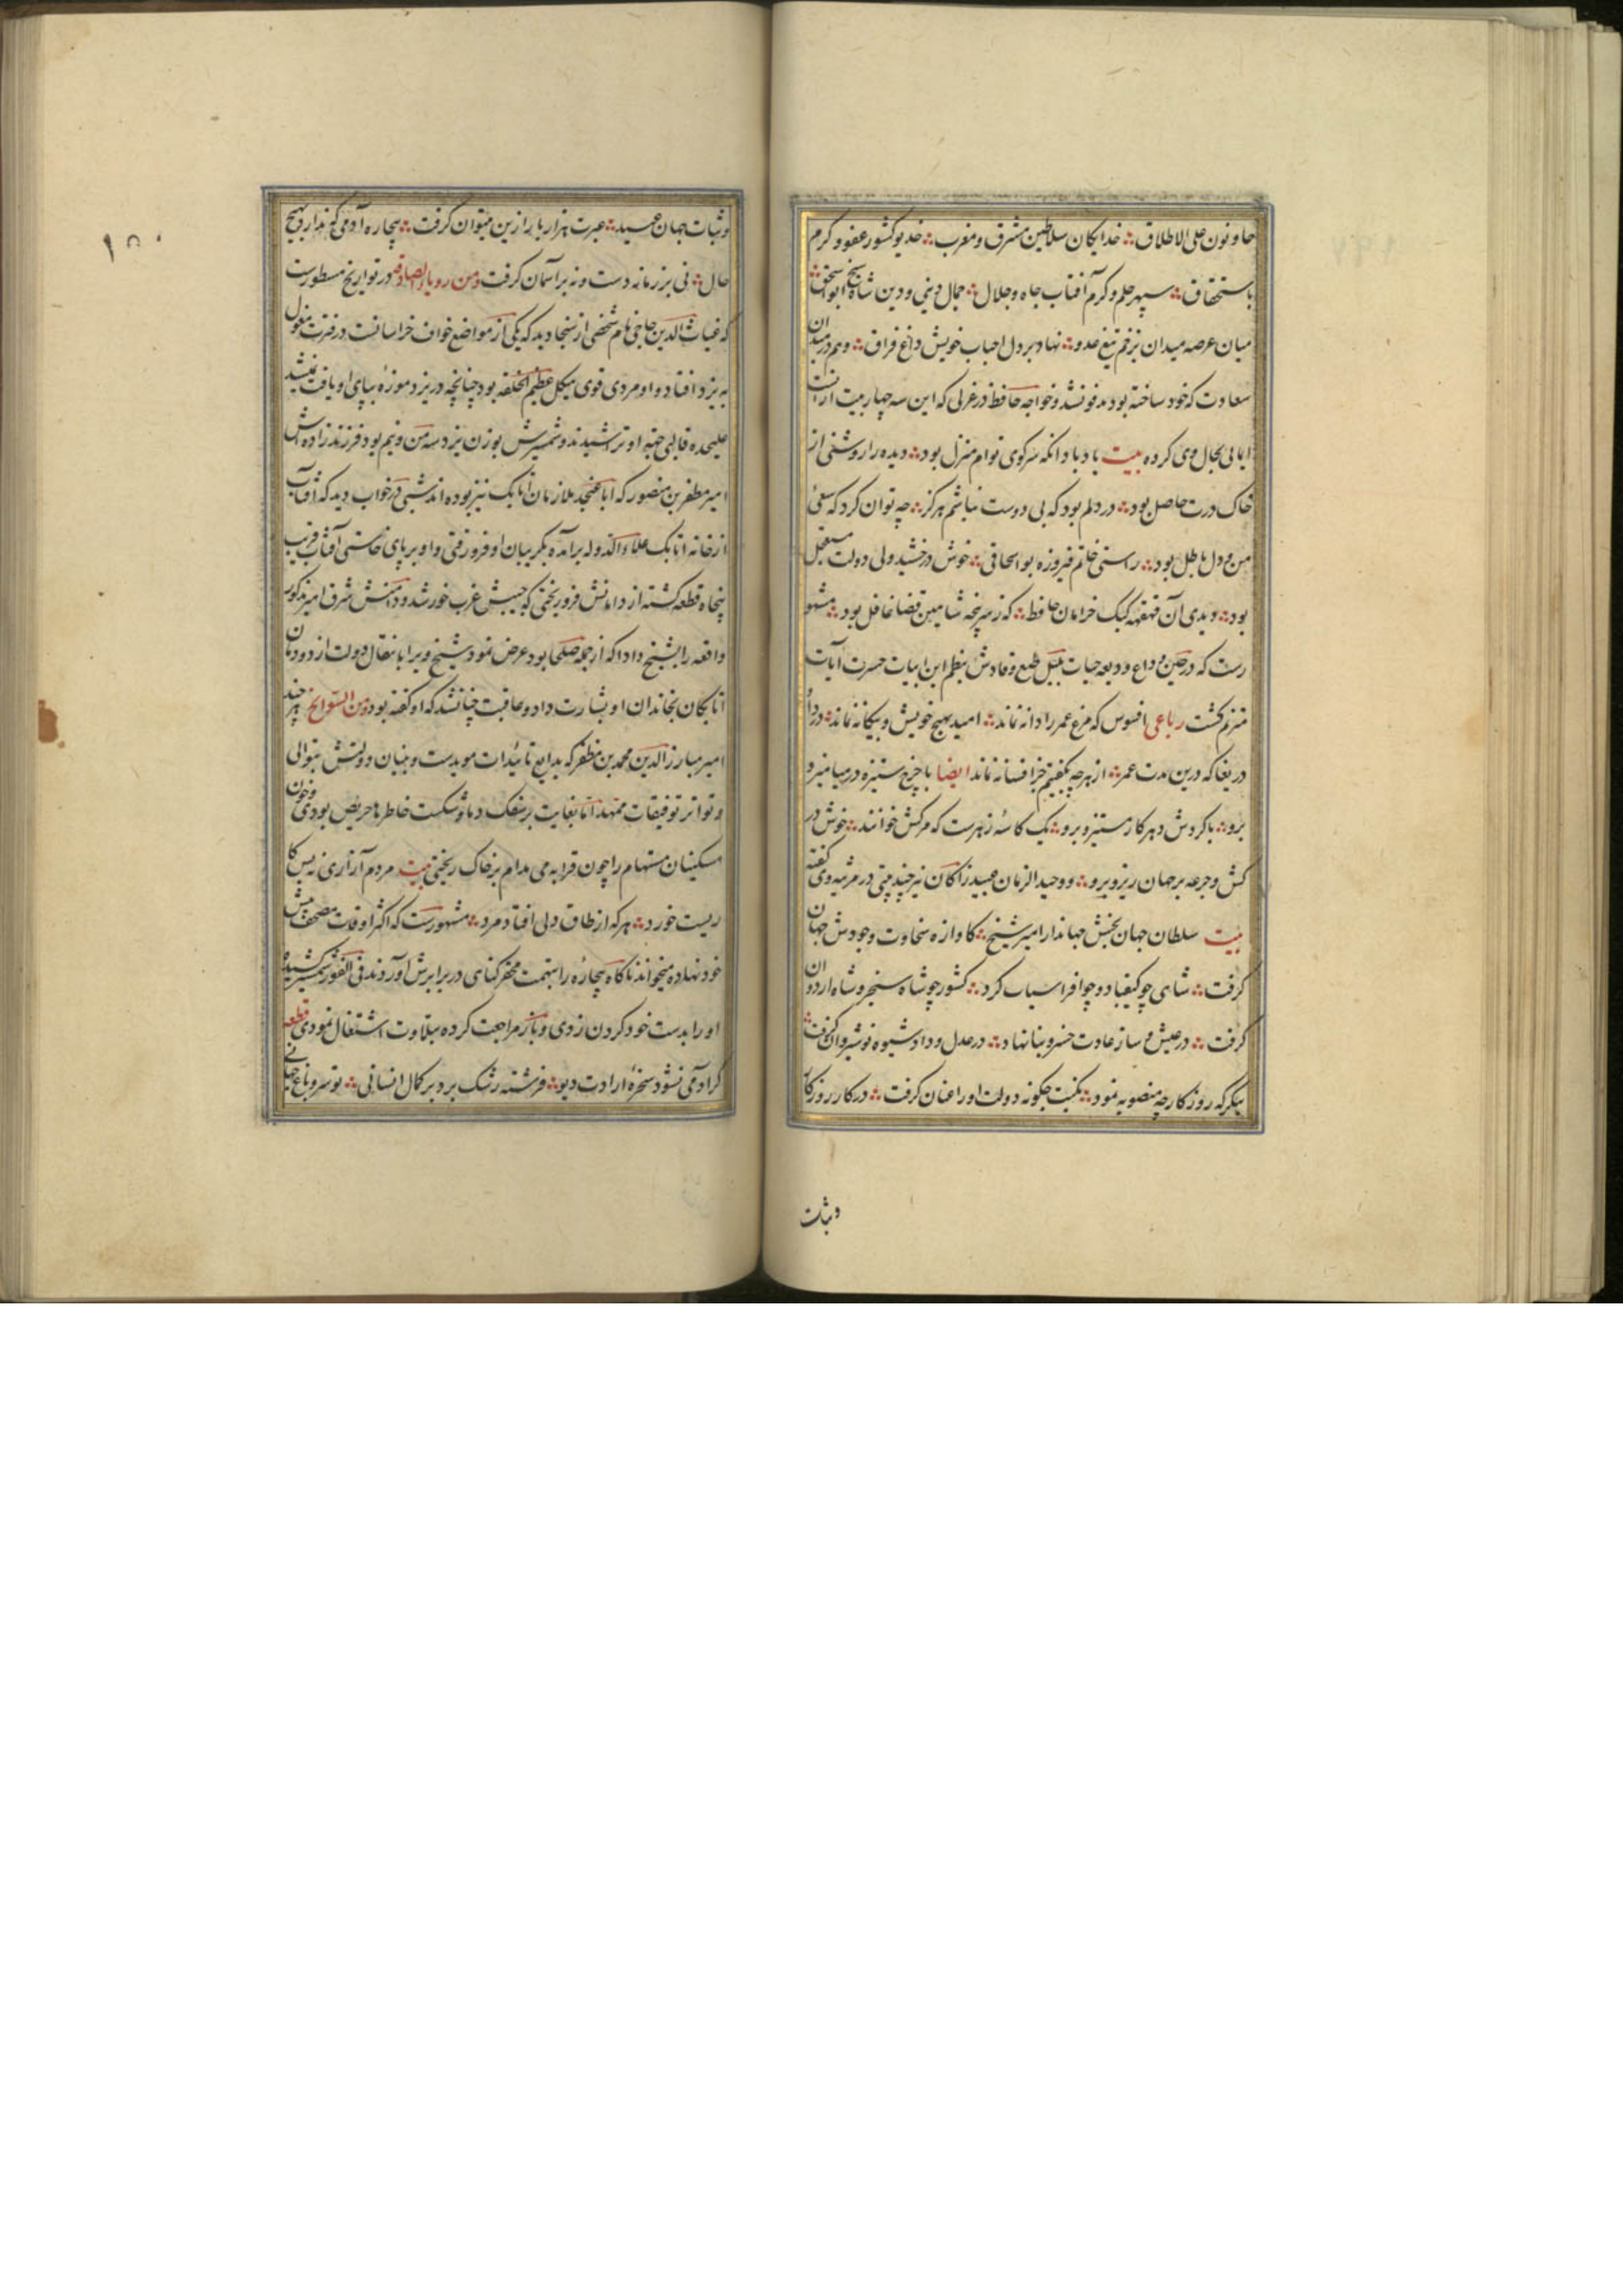 حا و نون علی الاطلاق ؞ خدایکان سلاطین مشرق و مغرب ؞ خدیو کشور عفو و کرم
باستحقاق ؞ سپهر حلم و کرم آفتاب جاه و جلال ؞ جمال دینی و دین شاه شیخ ابواسحق ؞
میان عرصه میدان بزخم تیغ عدو ؞ نهاد بر دل احباب خویش داغ فراق ؞ و هم در میدان
سعادت که خود ساخته بود مدفون شد و خواجه حافظ در غزلی که این سه چهار بیت از آنست
ایمائی بحال وی کرده بیت یاد باد آنکه سر کوی توام منزل بود ؞ دیده را روشنی از
خاک درت حاصل بود ؞ در دلم بود که بی دوست نباشم هرگز ؞ چه توان کرد که سعی
من و دل باطل بود ؞ راستی خاتم فیروزه بواسحاقی ؞ خوش درخشید ولی دولت مستعجل
بود ؞ دیدی آن قهقهه کبک خرامان حافظ ؞ که ز سرپنجه شاهین قضا غافل بود ؞ مشهو
رست که در حین وداع ودیعه حیات بلبل طبع وقادش بنظم این ابیات حسرت آیات
مترنم کشت رباعی افسوس که مرغ عمر را دانه نماند ؞ امید بهیچ خویش و بیکانه نماند ؞ دردا و
دریغا که درین مدت عمر ؞ از هرچه بگفتیم جز افسانه نماند ایضا با چرخ ستیزه در میامیز و
برو ؞ با کردش دهر کار مستیز و برو ؞ یک کاسه زهرست که مرکش خوانند ؞ خوش در
کش و جرعه بر جهان ریز و برو ؞ و وحید الزمان عبید زاکان نیز چند بیتی در مرثیه وی گفته
بیت سلطان جهان بخش جهاندار امیر شیخ ؞ کاوازه سخاوت و جودش جهان
کرفت ؞ شاهی چو کیقباد و چو افراسیاب کرد ؞ کشور چو شاه سنجر و شاه اردوان
کرفت ؞ در عیش و ساز عادت خسرو بنا نهاد ؞ در عدل و داد شیوه نوشیروان کرفت ؞
بنکر که روزکار چه منصوبه نمود ؞ نکبت چکونه دولت او را عنان کرفت ؞ در کار روزکار
و ثبات
و ثبات جهان عبید ؞ عبرت هزار بار ازین میتوان کرفت ؞ بیچاره آدمی که ندارد بهیچ
حال ؞ نی بر زمانه دست و نه بر آسمان کرفت و من رویاء الصادقه در تواریخ مسطورست
که غیاث الدین حاجی نام شخصی از سنجا دید که یکی از مواضع خواف خراسانست در فترت مغول
به یزد افتاد و او مردی قوی هیکل عظیم الخلقه بود چنانچه در یزد موزه بپای او یافت نمیشد
علیحده قالبی جهة او تراشیدند و شمشیرش بوزن یزد سه من و نیم بود فرزند زاده اش
امیر مظفر بن منصور که ابا عن جد ملازمان اتابک نیز بوده اند شبی در خواب دید که آفتاب
از خانه اتابک علاء الدوله برآمده بکریبان او فرو رفتی و او بر پای خاستی آفتاب قریب
پنجاه قطعه کشته از دامانش فرو ریختی که جیبش غرب خورشد و دامنش شرق امیر مذکور
واقعه را بشیخ دادا که از جمله صلحا بود عرض نمود شیخ ویرا بانتقال دولت از دودمان
اتابکان بخاندان او بشارت داد و عاقبت چنان شد که او گفته بود و من السوانح هر چند
امیر مبارز الدین محمد بن مظفر که بدایع تائیدات مویدست و بنیان دولتش بتوالی
و تواتر توفیقات ممهد اما بغایت بر سفک دما و شکست خاطرها حریص بودی و خون
مسکینان مستهام را چون قرابه می مدام بر خاک ریختی بیت مردم آزاری نه بس کا
ریست خورد ؞ هر که از طاق دلی افتاد مرد ؞ مشهورست که اکثر اوقات مصحف پیش
خود نهاده میخواند ناکاه بیچاره را بتهمت محقر گناهی در برابرش آوردند فی الفور شمشیر کشیده
او را بدست خود کردن زدی و باز مراجعت کرده بتلاوت اشتغال نمودی قطعه
کر آدمی نشود سخره ارادت دیو ؞ فرشته رشک برد بر کمال انسانی ؞ تو سرو باغ